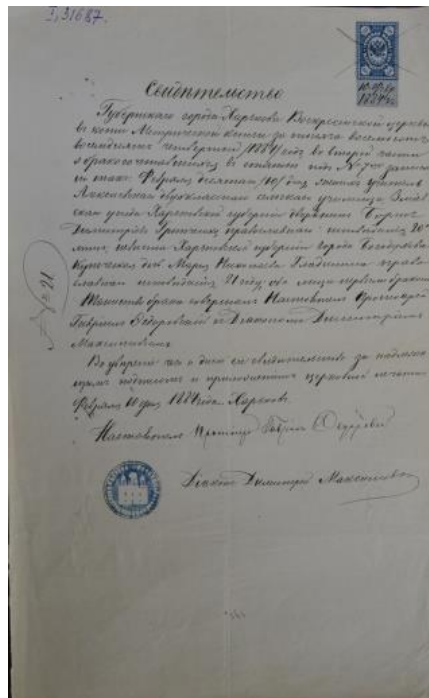 I, 31687.
10 февр
1884 г.
Свидѣтельство
Губернскаго города Харькова Воскресенской церкви
въ копіи Метрической книги за тысяча восемьсотъ
восемьдесятъ четвертый /1884/ годъ во второй части
о бракосочетавшихся въ статьѣ подъ № 7мъ записан
Февраля десятаго /10/ дня женихъ учитель
Алексѣевскаго двухкласснаго сельскаго училища, Зміев
скаго уѣзда Харьковской губерніи дворянинъ Борисъ
Димитріевъ Гринченко православный 20
лѣтъ, невѣста Харьковской губерніи города Богодухова
Купеческая дочь Марія Николаева Гладилина право
славная 21 года, оба первымъ бракомъ
Таинство брака совершали Настоятель Протоіерей
Гавріилъ Ѳедоровскій и Діаконъ Димитрій
Максимовъ.
Въ увѣреніе чего и дано сіе свидѣтельство за надлежа
щимъ подписомъ и приложеніемъ церковной печати
Февраля 10 дня 1884 года. Харьковъ.
№ 21
Настоятель Протоіерей Гавріилъ
Діаконъ Димитрій Максимовъ